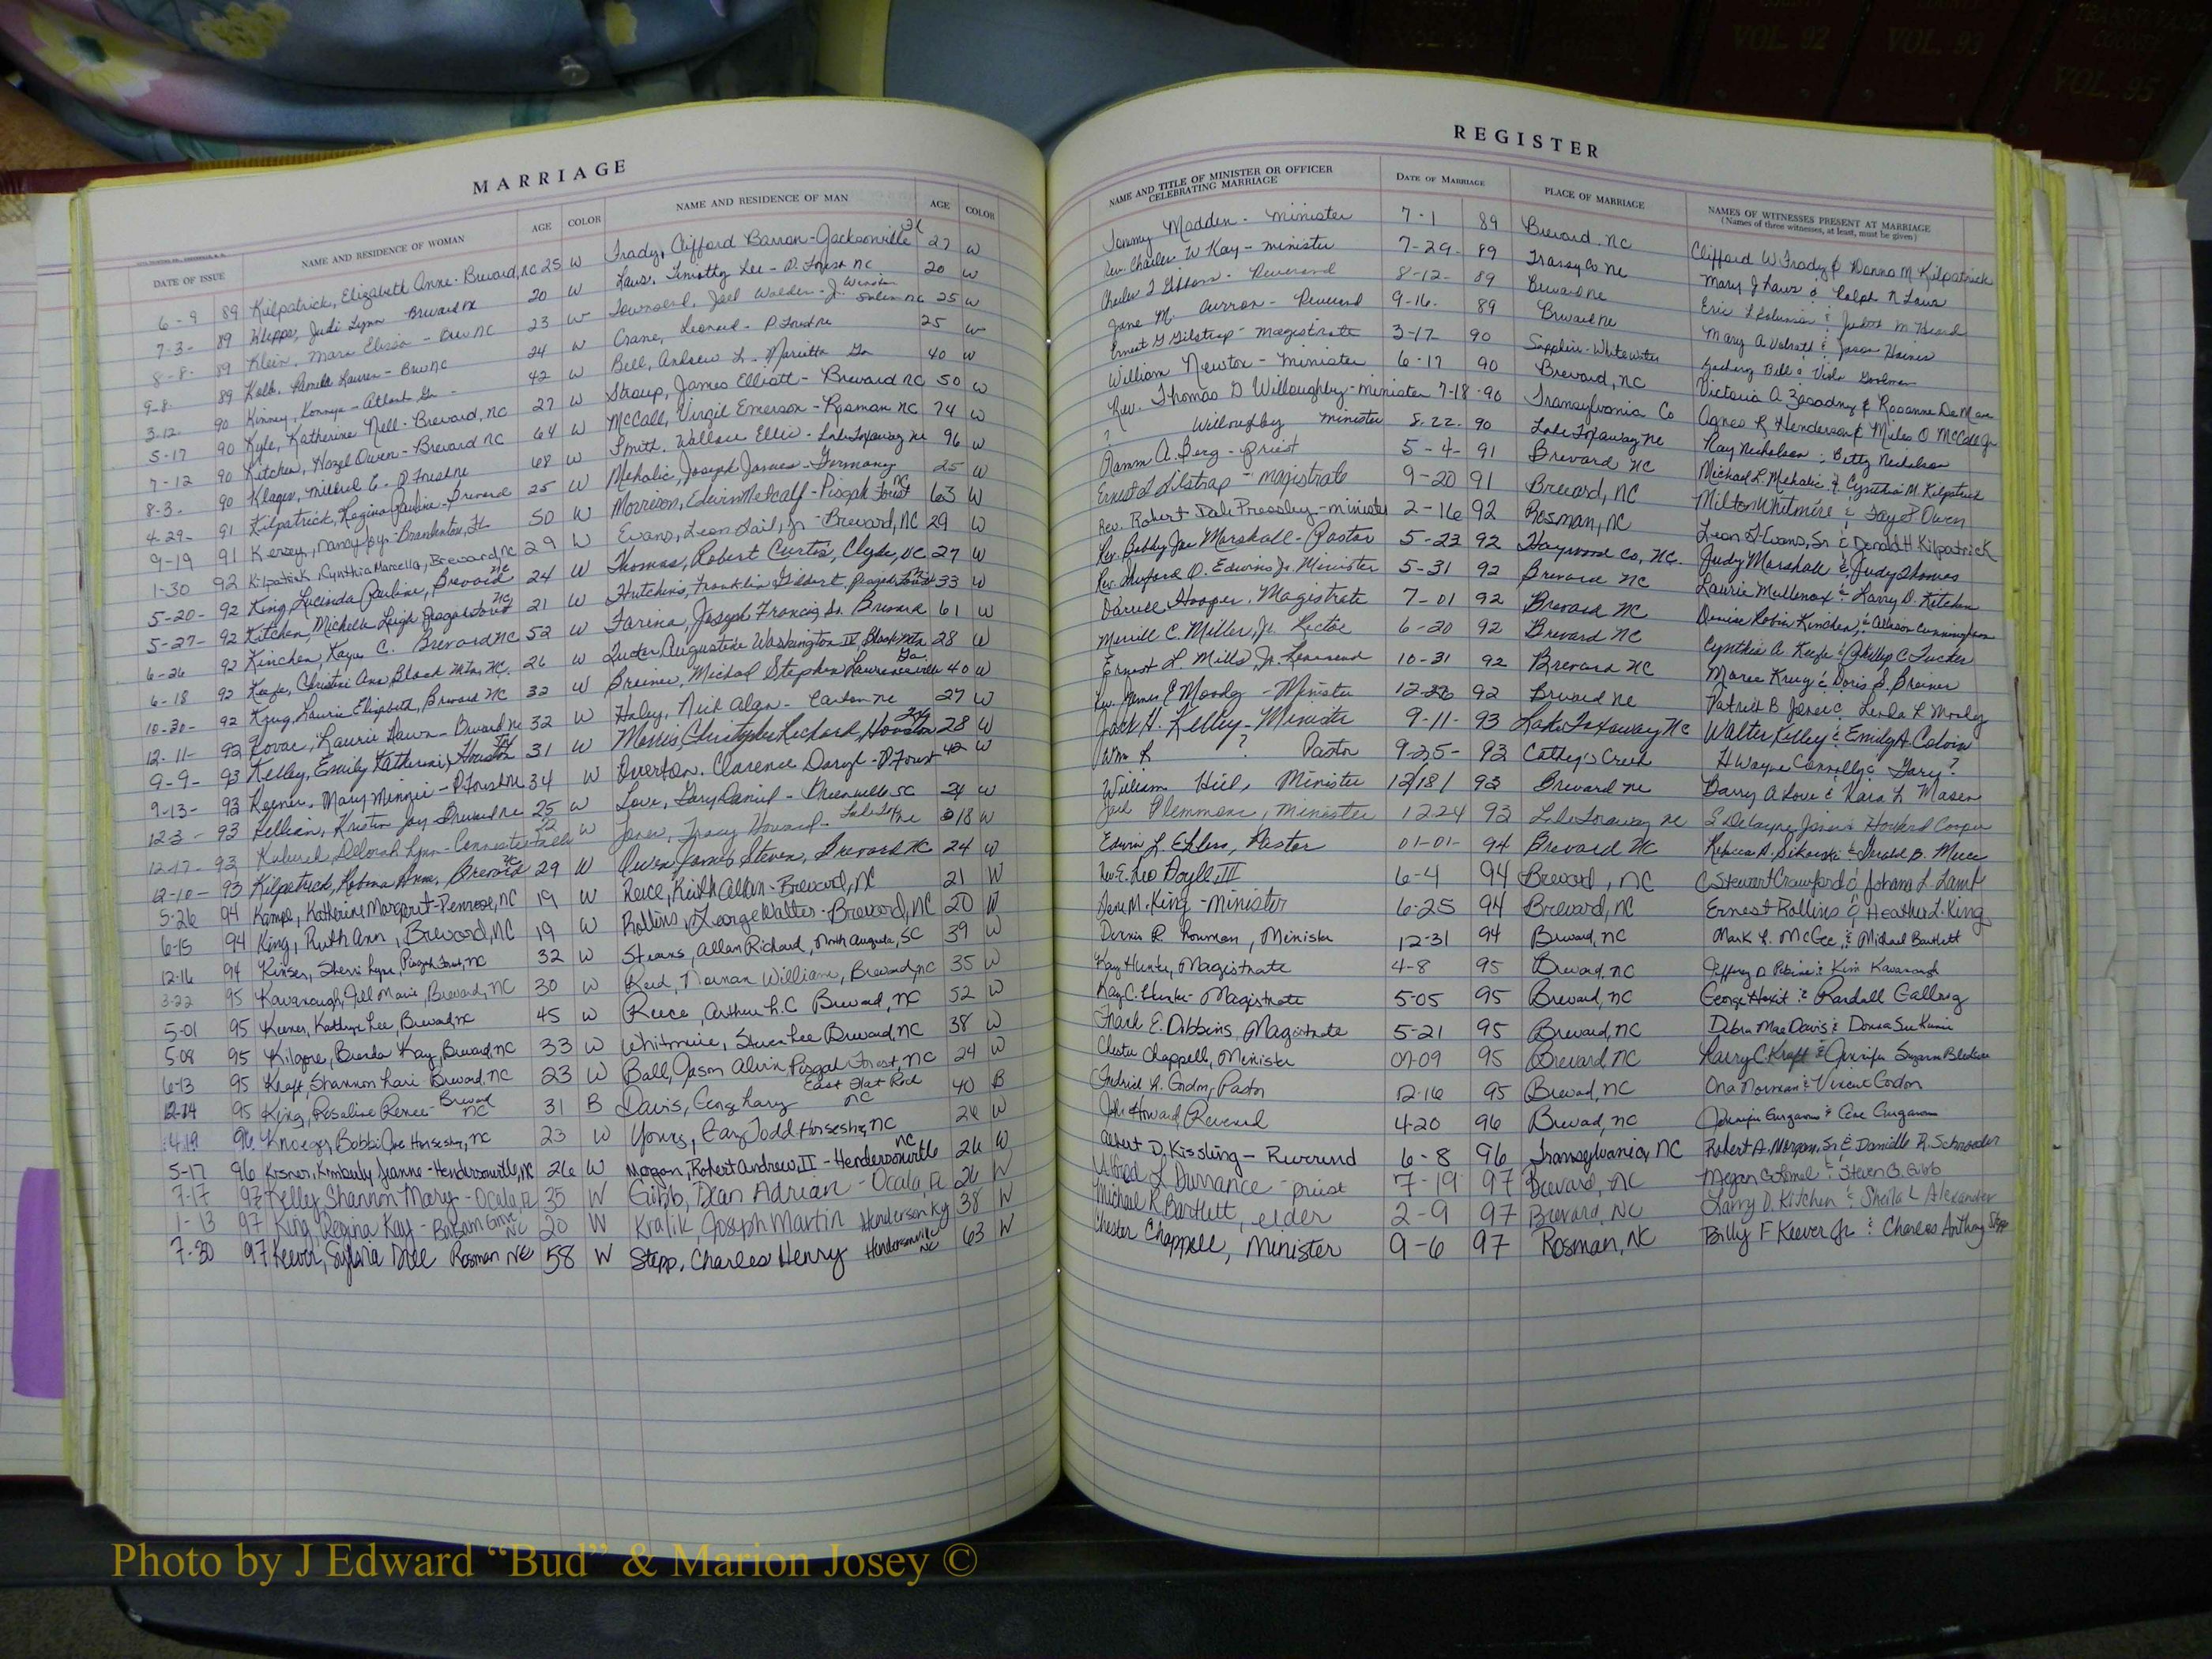 VOL. 92
VOL. 93
VOL. 95
MARRIAGE
DATE OF ISSUE NAME AND RESIDENCE OF WOMAN AGE COLOR NAME AND RESIDENCE OF MAN AGE COLOR
6-9 89 Kilpatrick, Elizabeth Anne - Brevard, NC 25 W Frady, Clifford Barron - Jacksonville 27 W
7-3- 89 Judi Lynn - Brevard NC 20 W Laws, Timothy Lee - P. Forest NC 20 W
8-8- 89 Klein, Mara Elissa - Brev NC 23 W Townsend, Joel Walden - Winston Salem NC 25 W
9-8 89 Kolb, Pamela Lauren - Brev NC 24 W Crane, Leonard - P Forest NC 25 W
3-12 90 Kinney, - Atlanta Ga - 42 W Bell, Andrew L. - Marietta Ga 40 W
5-17 90 Kyle, Katherine Nell - Brevard, NC 27 W Stroup, James Elliott - Brevard NC 50 W
7-12 90 Kitchen, Hazel Owen - Brevard NC 64 W McCall, Virgil Emerson - Rosman NC 74 W
8-3- 90 Mildred E. - P Forest NC 68 W Smith, Wallace Ellis - Lake Toxaway NC 96 W
4-29- 91 Kilpatrick, Regina Pauline - Brevard 25 W Mehalic, Joseph James - Germany 25 W
9-19 91 Kersey, Nancy Joy - Bradenton, FL 50 W Morrison, Edwin Metcalf - Pisgah Forest NC 63 W
1-30 92 Kilpatrick, Cynthia Marcella, Brevard, NC 29 W Evans, Leon Gail, Jr - Brevard, NC 29 W
5-20- 92 King, Lucinda Pauline, Brevard NC 24 W Thomas, Robert Curtis, Clyde, NC 27 W
5-27- 92 Kitchen, Michelle Leigh Pisgah Forest NC 21 W Hutchins, Franklin Gilbert, Pisgah Forest 33 W
6-26 92 Kinchen, Kaye C. Brevard NC 52 W Farina, Joseph Francis, Sr. Brevard 61 W
6-18 92 Keefe, Christine Ann, Black Mtn, NC. 26 W Tucker, Augustine Washington IV, Black Mtn 28 W
10-30- 92 Krug, Laurie Elizabeth, Brevard NC 32 W Breiner, Michael Stephen Lawrenceville Ga 40 W
12-11- 92 Kovac, Laurie Dawn - Brevard NC 32 W Haley, Neil Alan - Canton NC 27 W
9-9- 93 Kelley, Emily Katherine, Houston TX 31 W Morris Christopher Richard, Houston 28 W
9-13- 93 Keener, Mary Minnie - P Forest NC 34 W Overton, Clarence Daryl - P Forest 42 W
12-3- 93 Killian, Kristin Joy - Brevard NC 25 W Love, Gary Daniel - Greenville SC 24 W
12-17- 93 Deborah Lynn - 22 W Jones, Tracy Howard - Lake Tox NC 18 W
12-10- 93 Kilpatrick, Robina Anne, Brevard NC 29 W Owen James Steven, Brevard NC 24 W
5-26 94 Kampe, Katherine Margaret - Penrose, NC 19 W Reece, Keith Allan - Brevard, NC 21 W
6-15 94 King, Ruth Ann, Brevard, NC 19 W Rollins, George Walter - Brevard, NC 20 W
12-16 94 Kinser, Sherri Lynn, Pisgah Forest, NC 32 W Stearns, Allan Richard, North Augusta, SC 39 W
3-22 95 Kavanaugh, Jill Marie, Brevard, NC 30 W Reid, Norman William, Brevard, NC 35 W
5-01 95 Keener, Kathryn Lee, Brevard, NC 45 W Reece, Arthur L.C Brevard, NC 52 W
5-08 95 Kilgore, Brenda Kay, Brevard, NC 33 W Whitmire, Steven Lee Brevard, NC 38 W
6-13 95 Kraft, Shannon Lari Brevard, NC 23 W Ball, Jason Alvin Pisgah Forest, NC 24 W
12-14 95 King, Rosaline Renee - Brevard NC 31 B Davis, East Flat Rock NC 40 B
4-19 96 Knoeger, Bobbi Joe Horseshoe, NC 23 W Young, Gary Todd Horseshoe, NC 26 W
5-17 96 Kosner, Kimberly Jeanne - Hendersonville, NC 26 W Morgan, Robert Andrew, II - Hendersonville NC 26 W
7-17 97 Kelly, Shannon Mary - Ocala, FL 35 W Gibb, Dean Adrian - Ocala, FL 26 W
1-13 97 King, Regina Kay - Balsam Grove NC 20 W Kralik, Joseph Martin Henderson Ky 38 W
7-30 97 Keever, Sylvia Dale Rosman NC 58 W Stepp, Charles Henry Hendersonville NC 63 W
REGISTER
NAME AND TITLE OF MINISTER OR OFFICER CELEBRATING MARRIAGE DATE OF MARRIAGE PLACE OF MARRIAGE NAMES OF WITNESSES PRESENT AT MARRIAGE
(Names of three witnesses, at least, must be given)
Tommy Madden - Minister 7-1 89 Brevard, NC Clifford W Frady & Donna M Kilpatrick
Rev. Charles W Kay - minister 7-29- 89 Transy Co NC Mary J Laws & Ralph N Laws
Charles - Reverend 8-12- 89 Brevard NC Eric & Judith M Heard
Jane M. - Reverend 9-16- 89 Brevard NC Mary A & Jason
Ernest G Gilstrap - magistrate 3-17- 90 Sapphire-Whitewater Bell & Viola Goodman
William Newton - minister 6-17 90 Brevard, NC Victoria A Zasadny & Rosanne
Rev. Thomas D Willoughby - minister 7-18-90 Transylvania Co Agnes R Henderson & Miles O McCall Jr
? Willoughby minister 8-22- 90 Lake Toxaway NC Ray Nicholson & Betty Nicholson
A. Berg - priest 5-4- 91 Brevard NC Michael L. Mehalic & Cynthia M. Kilpatrick
Ernest G Gilstrap - magistrate 9-20 91 Brevard, NC Milton Whitmire & Faye P Owen
Rev. Robert Dale Pressley - minister 2-16 92 Rosman, NC Leon G Evans, Sr & Donald H Kilpatrick
Rev. Bobby Joe Marshall - Pastor 5-23 92 Haywood Co, NC. Judy Marshall & Judy Thomas
Rev. O. Edwins Jr. Minister 5-31 92 Brevard NC Laurie Mullenax & Larry D. Kitchen
Darrell Hooper, Magistrate 7-01 92 Brevard NC Denise Robin Kinchen, & Allison Cunningham
Merrill C. Miller, Jr. Rector 6-20 92 Brevard NC Cynthia A. Keefe & Phillip C Tucker
Ernest L. Mills, Jr. Reverend 10-31 92 Brevard NC Maree Krug & Doris S. Breiner
Rev. James E Moody - Minister 12-26 92 Brevard NC Patrick B Jones & Linda L Moody
Jack H. Kelley - Minister 9-11- 93 Lake Toxaway NC Walter Kelley & Emily A. Colvin
Wm R ? Pastor 9-25- 93 Cathey's Creek H Wayne Connelly & Gary ?
William Hiel, Minister 12/18/ 93 Brevard NC Barry A Love & Kara L Mason
Jack Plemmons, minister 12-24 93 Lake Toxaway NC S Delayne Jones & Howard Cooper
Edwin L Ehlers, Pastor 01-01- 94 Brevard NC Rebecca A. Sikorski & B. Mecca
Rev E. Leo Doyle, III 6-4 94 Brevard, NC C Stewart Crawford & Johnna L. Lamb
Dene M. King - Minister 6-25 94 Brevard, NC Ernest Rollins & Heather L. King
Dennis R. Bowman, Minister 12-31 94 Brevard, NC Mark L. McGee & Michael Bartlett
Kay Hunter, Magistrate 4-8 95 Brevard, NC Jeffrey D & Kim Kavanaugh
Kay C. Hunter - Magistrate 5-05 95 Brevard, NC George & Randall
Frank E. Dobbins, Magistrate 5-21 95 Brevard, NC Debra Mae Davis & Donna Sue
Chester Chappell, Minister 07-09 95 Brevard NC Larry C Kraft & Jennifer Suzann
L. Gordon, Pastor 12-16 95 Brevard, NC Ona Norman & Vincent Gordon
John Howard, Reverend 4-20 96 Brevard, NC
Albert D. Kissling - Reverend 6-8 96 Transylvania, NC Robert A. Morgan, Sr & Danielle R. Schroeder
L Durrance - priest 7-19 97 Brevard, NC Megan & Steven G. Gibb
Michael R Bartlett, elder 2-9 97 Brevard, NC Larry D. Kitchen & Sheila L Alexander
Chester Chappell, Minister 9-6 97 Rosman, NC Billy F Keever Jr & Charles Anthony Stepp
Photo by J Edward “Bud” & Marion Josey ©